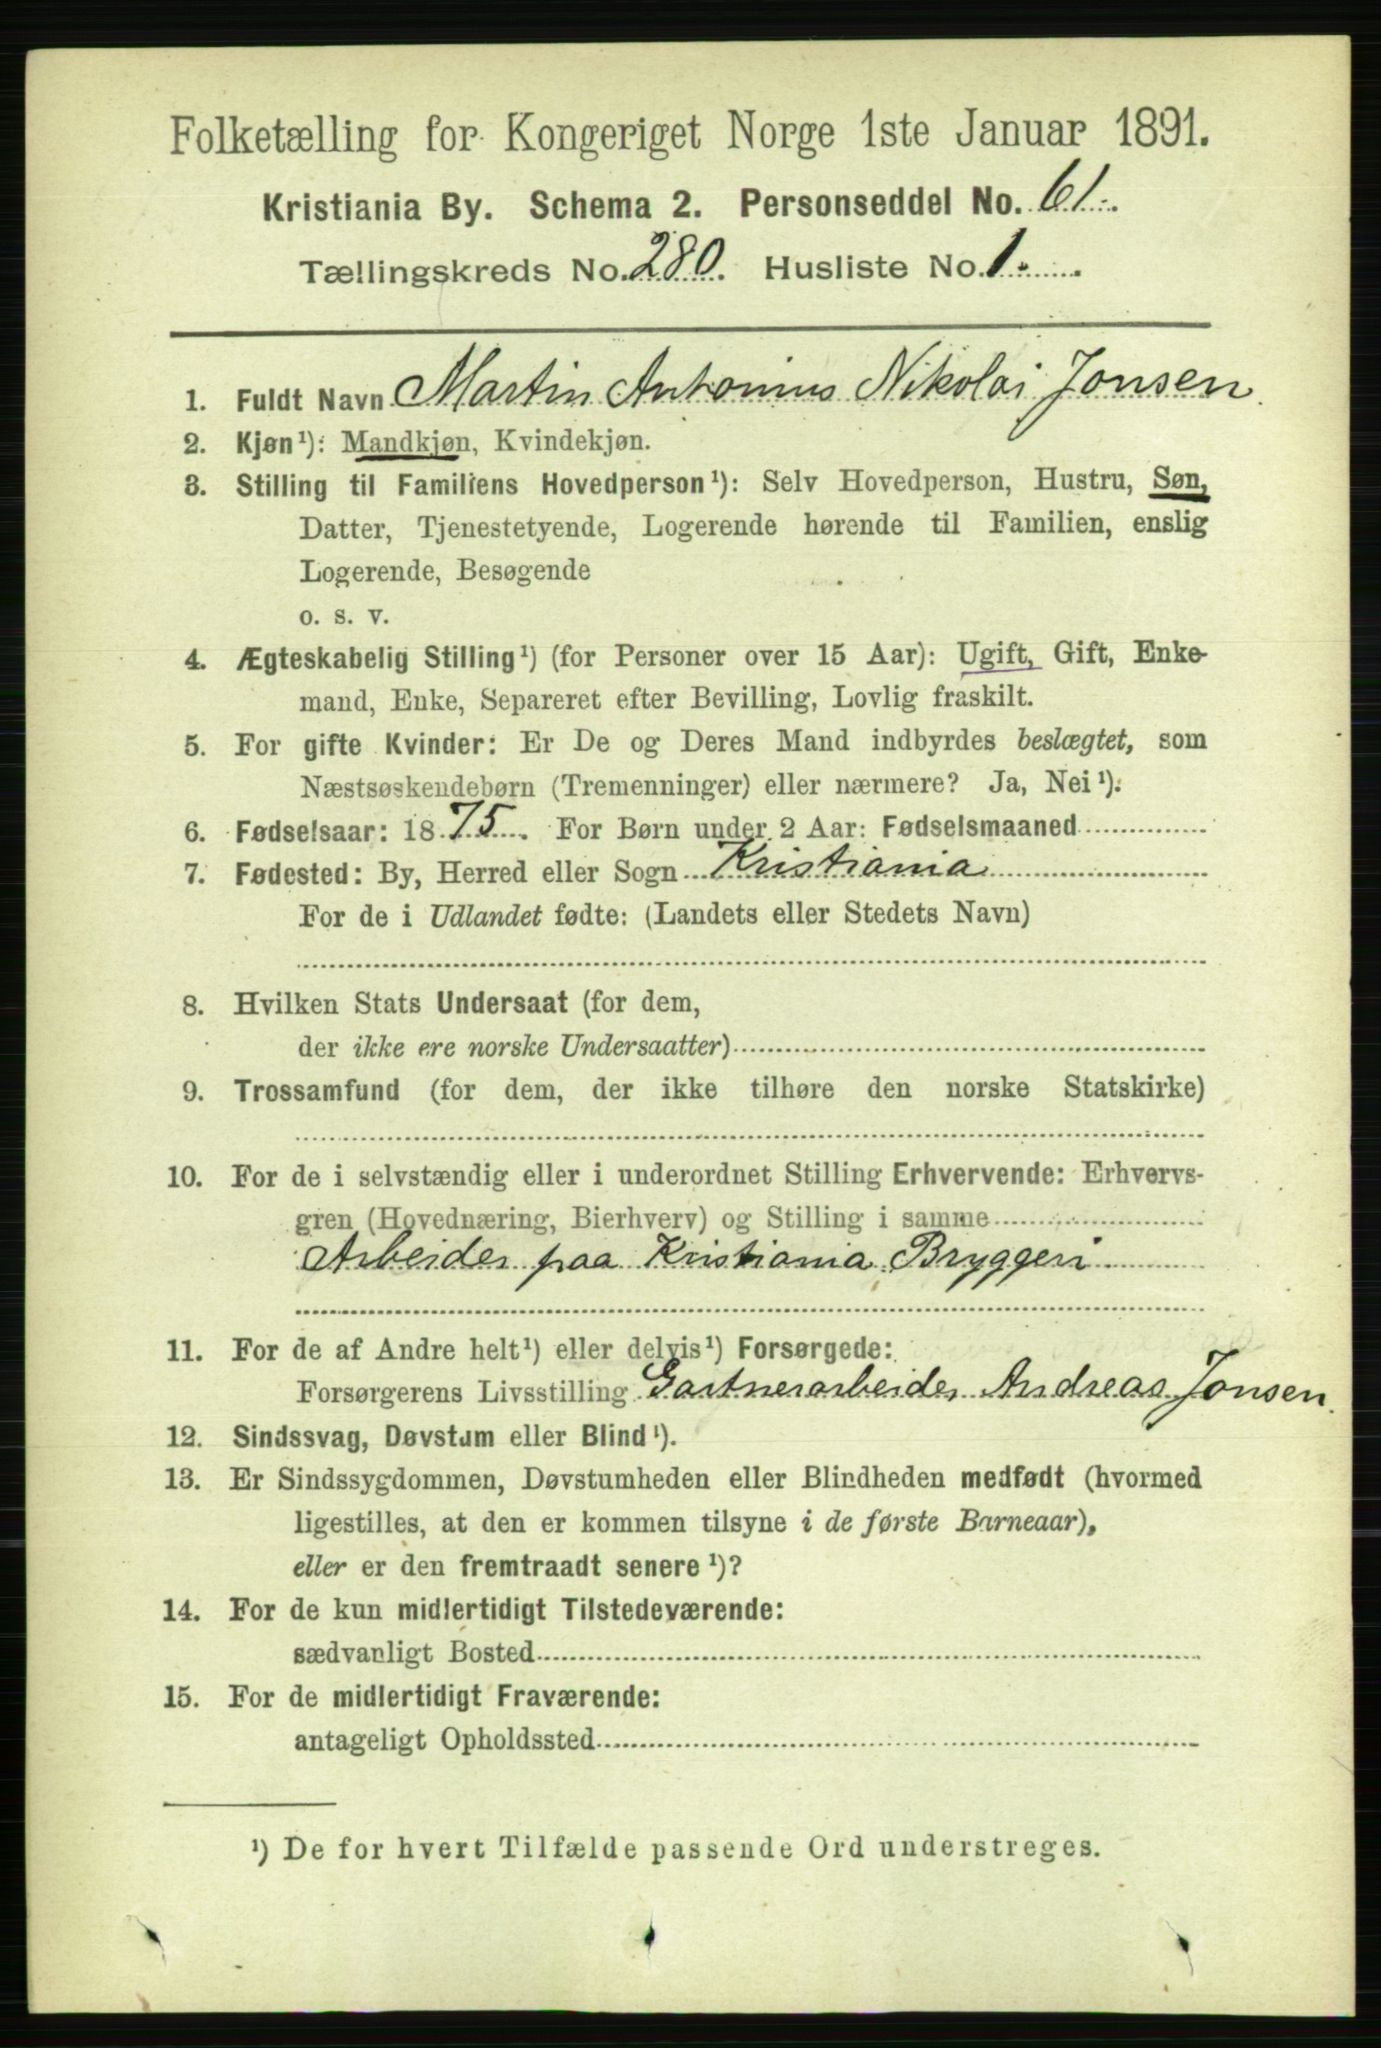 Folketælling for Kongeriget Norge 1ste Januar 1891.
Kristiania By. Schema 2. Personseddel No. 61.
Tællingskreds No. 280. Husliste No. 1.
1. Fuldt Navn Martin Antonius Nikolai Jonsen
2. Kjøn¹): Mandkjøn, Kvindekjøn.
3. Stilling til Familiens Hovedperson¹): Selv Hovedperson, Hustru, Søn,
Datter, Tjenestetyende, Logerende hørende til Familien, enslig
Logerende, Besøgende
o. s. v.
4. Ægteskabelig Stilling¹) (for Personer over 15 Aar): Ugift, Gift, Enke-
mand, Enke, Separeret efter Bevilling, Lovlig fraskilt.
5. For gifte Kvinder: Er De og Deres Mand indbyrdes beslægtet, som
Næstsøskendebørn (Tremenninger) eller nærmere? Ja, Nei¹):
6. Fødselsaar: 1875. For Børn under 2 Aar: Fødselsmaaned
7. Fødested: By, Herred eller Sogn Kristiania
For de i Udlandet fødte: (Landets eller Stedets Navn)
8. Hvilken Stats Undersaat (for dem,
der ikke ere norske Undersaatter)
9. Trossamfund (for dem, der ikke tilhøre den norske Statskirke)
10. For de i selvstændig eller i underordnet Stilling Erhvervende: Erhvervs-
gren (Hovednæring, Bierhverv) og Stilling i samme
Arbeider paa Kristiania Bryggeri
11. For de af Andre helt¹) eller delvis¹) Forsørgede:
Forsørgerens Livsstilling Gartnerarbeider Andreas Jonsen.
12. Sindssvag, Døvstum eller Blind¹).
13. Er Sindssygdommen, Døvstumheden eller Blindheden medfødt (hvormed
ligestilles, at den er kommen tilsyne i de første Barneaar),
eller er den fremtraadt senere¹)?
14. For de kun midlertidigt Tilstedeværende:
sædvanligt Bosted
15. For de midlertidigt Fraværende:
antageligt Opholdssted
¹) De for hvert Tilfælde passende Ord understreges.